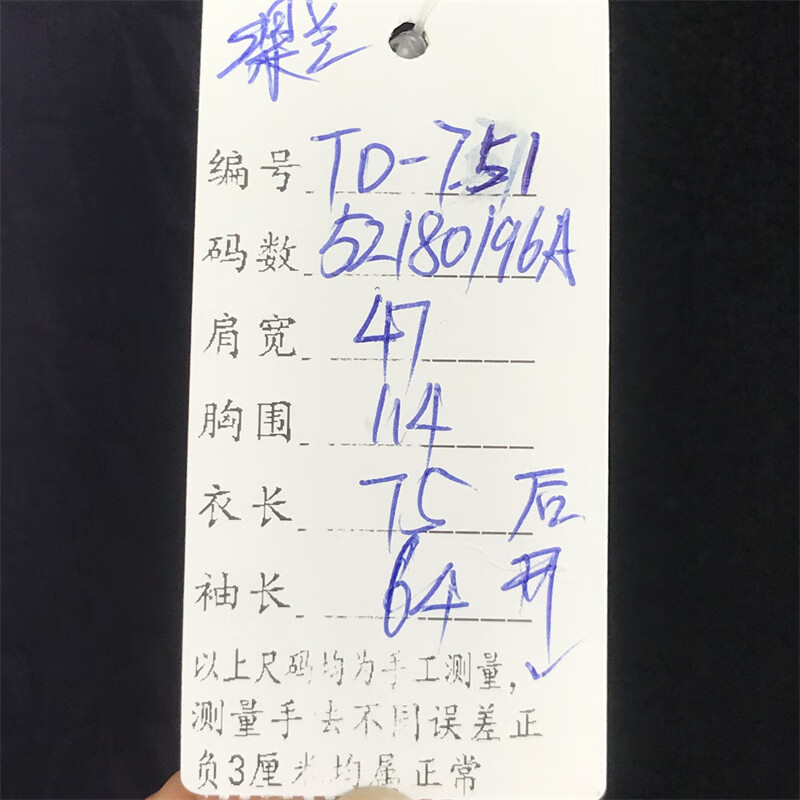 编号 TD-751
码数 52180196A
肩宽 47
胸围 114
衣长 75 后
袖长 64 开
以上尺码均为手工测量,
测量手法不同误差正
负3厘米均属正常